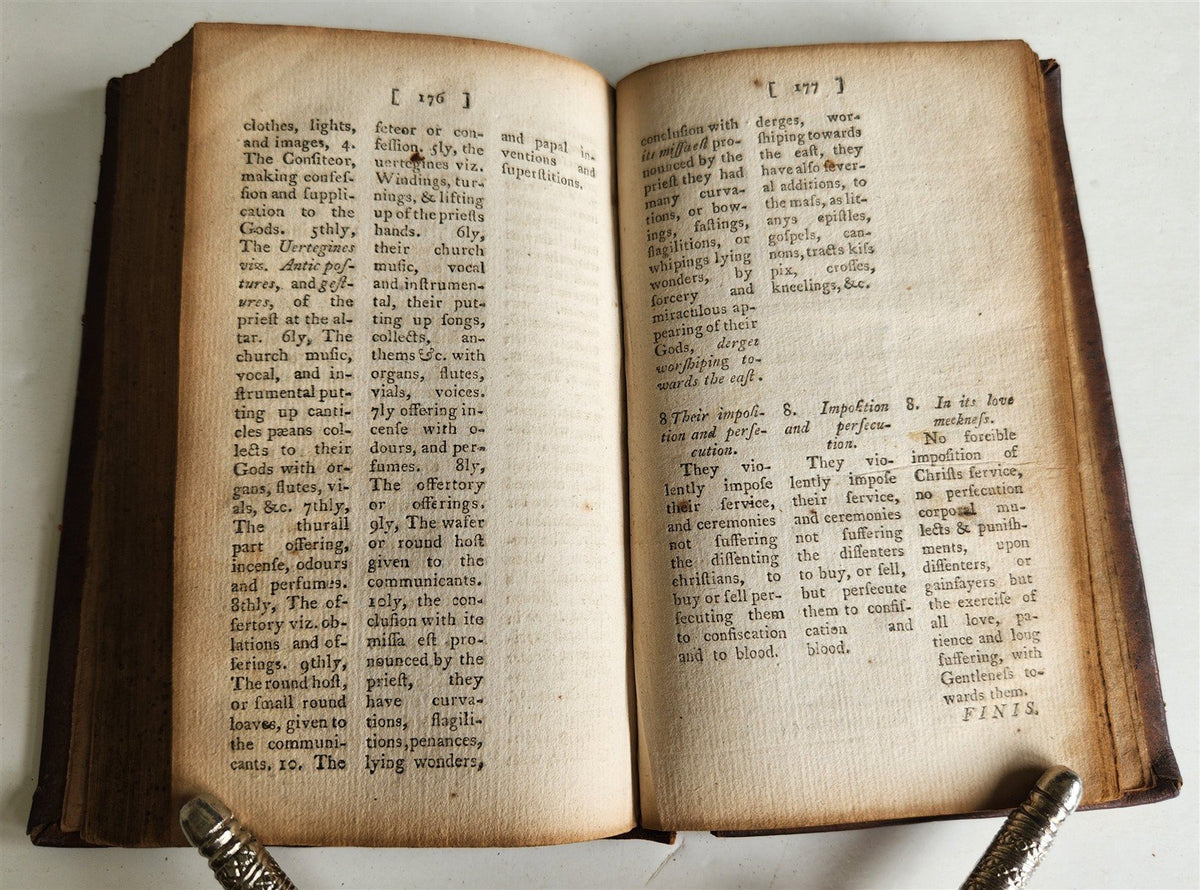 [ 176 ]
clothes, lights,
and images, 4.
The Confiteor,
making confeſ-
ſion and ſuppli-
cation to the
Gods. 5thly,
The Uertegines
viz. Antic poſ-
tures, and geſt-
ures, of the
prieſt at the al-
tar. 6ly, The
church muſic,
vocal, and in-
ſtrumental put-
ting up canti-
cles pæans col-
lects to their
Gods with or-
gans, flutes, vi-
als, &c. 7thly,
The thurall
part offering,
incenſe, odours
and perfumes.
8thly, The of-
fertory viz. ob-
lations and of-
ferings. 9thly,
The round hoſt,
or ſmall round
loaves, given to
the communi-
cants. 10. The
feteor or con-
feſſion. 5ly, the
uertegines viz.
Windings, tur-
nings, & lifting
up of the prieſts
hands. 6ly,
their church
muſic, vocal
and inſtrumen-
tal, their put-
ting up ſongs,
collects, an-
thems &c. with
organs, flutes,
vials, voices.
7ly offering in-
cenſe with o-
dours, and per-
fumes. 8ly,
The offertory
or offerings.
9ly, The wafer
or round hoſt
given to the
communicants.
10ly, the con-
cluſion with ite
miſſa eſt pro-
nounced by the
prieſt, they
have curva-
tions, flagili-
tions, penances,
lying wonders,
and papal in-
ventions and
ſuperſtitions.
[ 177 ]
concluſion with
its miſſa eſt pro-
nounced by the
prieſt they had
many curva-
tions, or bow-
ings, faſtings,
flagilitions, or
whipings lying
wonders, by
ſorcery and
miraculous ap-
pearing of their
Gods, derges
worſhiping to-
wards the eaſt.
derges, wor-
ſhiping towards
the eaſt, they
have alſo ſever-
al additions, to
the maſs, as lit-
anys epiſtles,
goſpels, can-
nons, tracts kiſs
pix, croſſes,
kneelings, &c.
8 Their impoſi-
tion and perſe-
cution.
They vio-
lently impoſe
their ſervice,
and ceremonies
not ſuffering
the diſſenting
chriſtians, to
buy or ſell per-
ſecuting them
to confiſcation
and to blood.
8. Impoſition
and perſecu-
tion.
They vio-
lently impoſe
their ſervice,
and ceremonies
not ſuffering
the diſſenters
to buy, or ſell,
but perſecute
them to confiſ-
cation and
blood.
8. In its love
meekneſs.
No forcible
impoſition of
Chriſts ſervice,
no perſecution
corporal mu-
lects & puniſh-
ments, upon
diſſenters, or
gainſayers but
the exerciſe of
all love, pa-
tience and long
ſuffering, with
Gentleneſs to-
wards them.
FINIS.